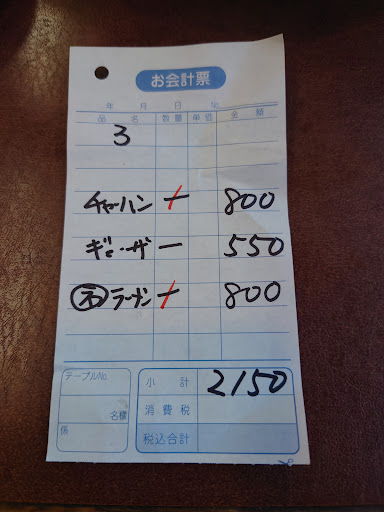 お会計票
年 月 日 №
品名 数量 単価 金額
3
チャーハン 一 800
ギョーザ 一 550
ラーメン 一 800
テーブルNo.
名様
係
小計 2150
消費税
税込合計